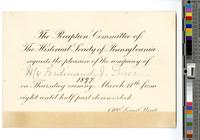 The Reception Committee of
The Historical Society of Pennsylvania
requests the pleasure of the company of
Mr Ferdinand J. Dreer
on Thursday evening March 11th from
1897.
eight until half past eleven o'clock.
1300 Locust Street.